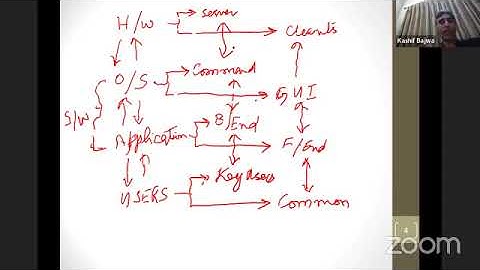 H/W → server
→ Clients
Kashif Bajwa
O/S → Command
→ GUI
S/W
Application → B/End
→ F/End
USERS → Key Users
→ Common
4
zoom